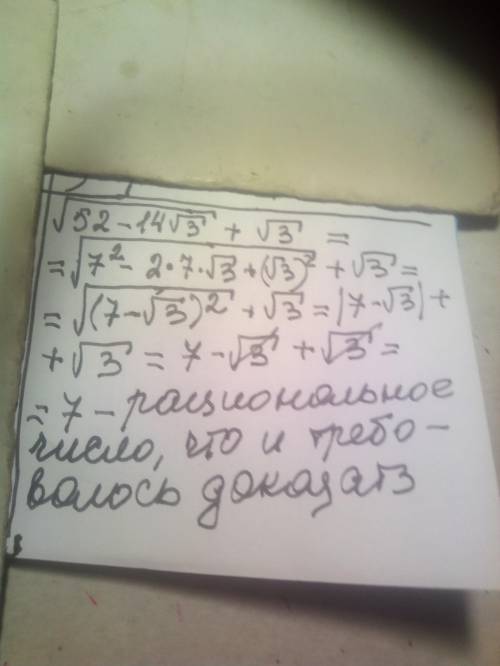 √52-14√3 + √3 =
=√7²- 2·7·√3+(√3)² + √3=
=√(7-√3)² + √3=|7-√3|+
+√3 = 7-√3 + √3=
=7-рациональное
число, что и требо-
валось доказать